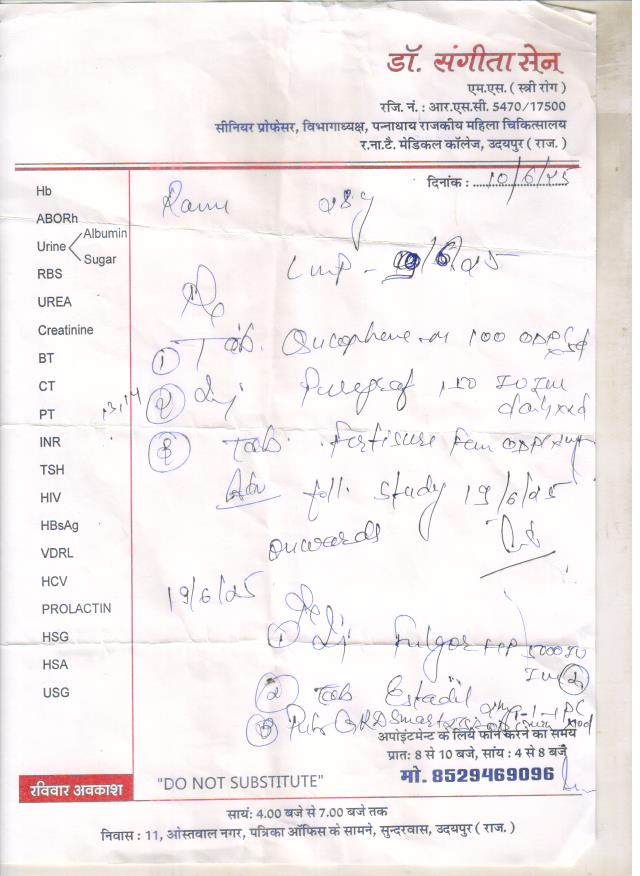 डॉ. संगीता सेन
एम.एस. ( स्त्री रोग )
रजि. नं. : आर.एस.सी. 5470/17500
सीनियर प्रोफेसर, विभागाध्यक्ष, पन्नाधाय राजकीय महिला चिकित्सालय
र.ना.टै. मेडिकल कॉलेज, उदयपुर ( राज. )
दिनांक : 10/6/25
Hb
ABORh
Urine Albumin
Sugar
RBS
UREA
Creatinine
BT
CT
PT
INR
TSH
HIV
HBsAg
VDRL
HCV
PROLACTIN
HSG
HSA
USG
28y
LMP - /6/25
Rx
① Tab. 100
13,14 ② Inj 150 IU IM
daily
③ Tab.
Adv foll. study 19/6/25
onwards
19/6/25
Rx
① Inj Fulgor 5000 IU
IM ②
② Tab Estadil 2mg 1-1-1
③
अपोइंटमेन्ट के लिये फोन करने का समय
प्रातः 8 से 10 बजे, सांय : 4 से 8 बजे
मो. 8529469096
रविवार अवकाश
"DO NOT SUBSTITUTE"
सायं: 4.00 बजे से 7.00 बजे तक
निवास : 11, ओस्तवाल नगर, पत्रिका ऑफिस के सामने, सुन्दरवास, उदयपुर ( राज. )